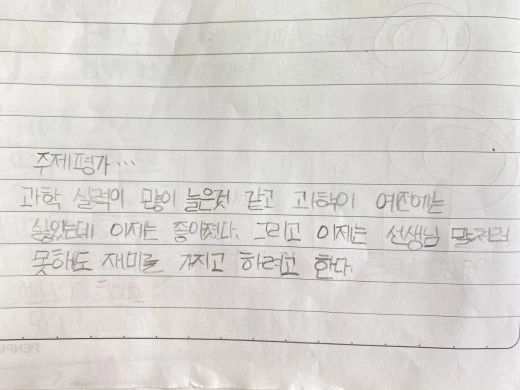 주제평가...
과학 실력이 많이 늘은것 같고 과학이 예전에는
싫었는데 이제는 좋아졌다. 그리고 이제는 선생님 말처럼
못해도 재미를 가지고 하려고 한다.